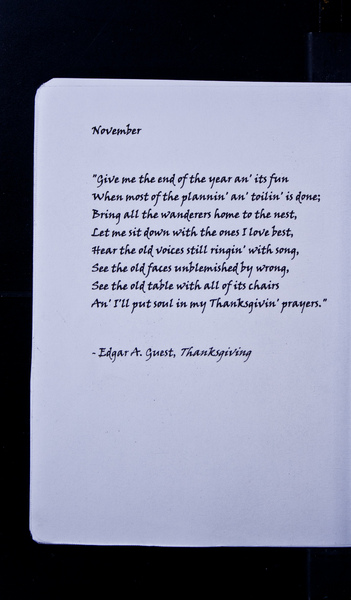 November
"Give me the end of the year an' its fun
When most of the plannin' an' toilin' is done;
Bring all the wanderers home to the nest,
Let me sit down with the ones I love best,
Hear the old voices still ringin' with song,
See the old faces unblemished by wrong,
See the old table with all of its chairs
An' I'll put soul in my Thanksgivin' prayers."
- Edgar A. Guest, Thanksgiving